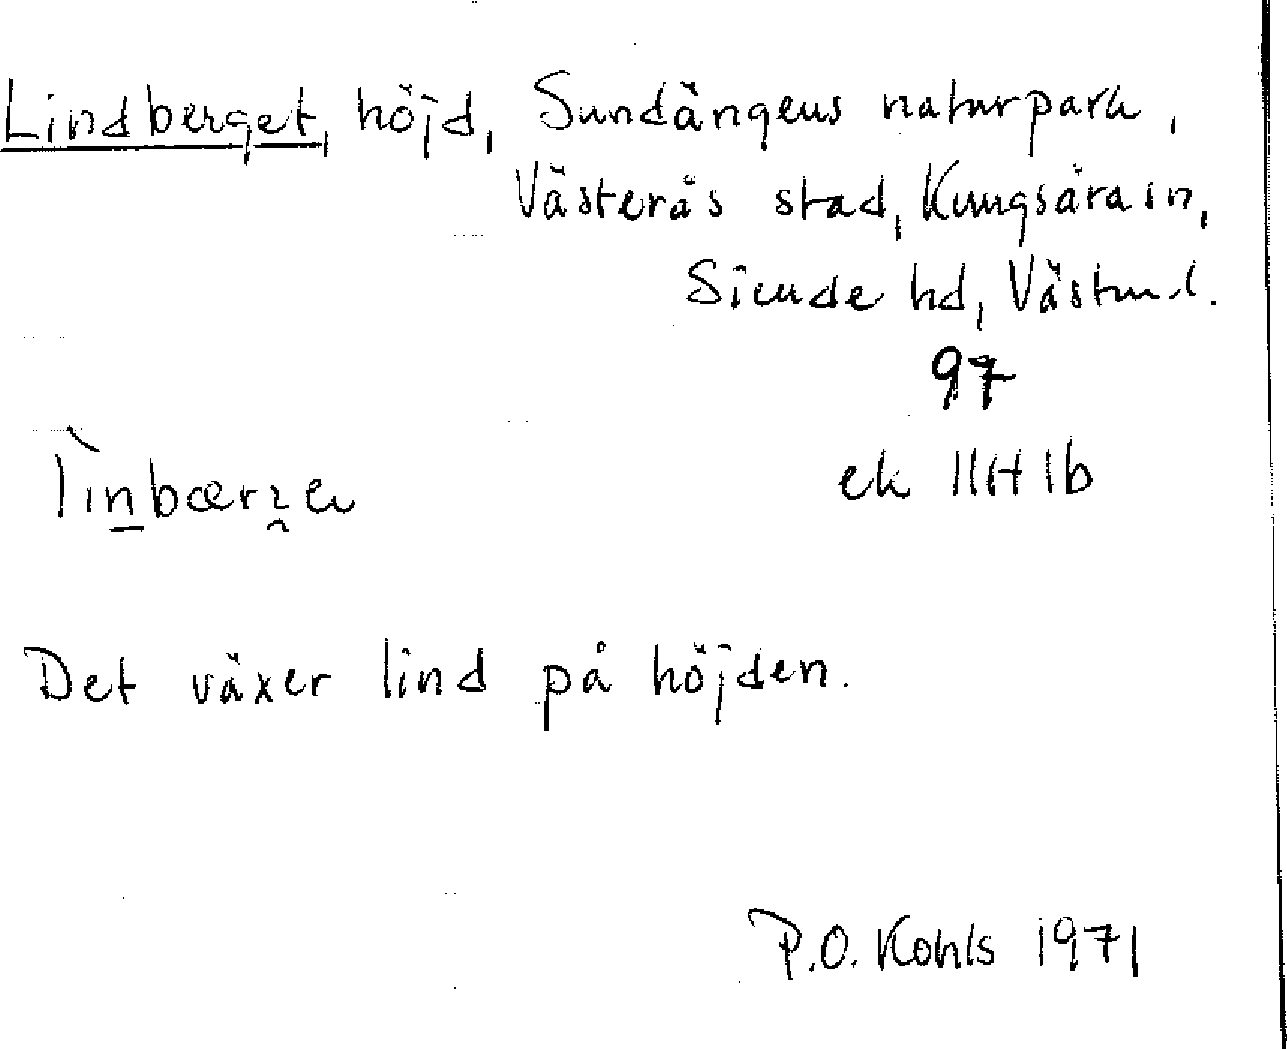 Lindberget, höjd, Sundängens naturpark,
Västerås stad, Kungsåra sn,
Siende hd, Västml.
97
ek 11H 1b
Det växer lind på höjden.
P.O. Kohls 1971